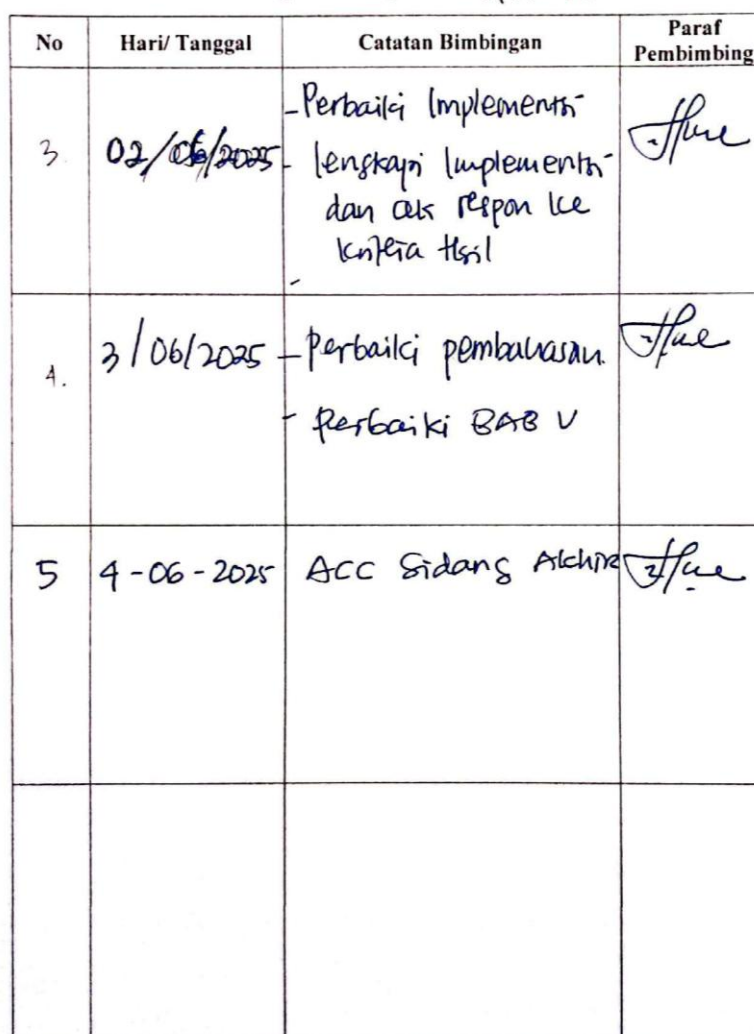 No Hari/ Tanggal Catatan Bimbingan Paraf Pembimbing
3. 02/06/2025 - Perbaiki Implementsi
- lengkapi Implementsi
dan cek respon ke
kriteria Hsil
-
4. 3/06/2025 - Perbaiki pembahasan
- Perbaiki BAB V
5 4-06-2025 ACC Sidang Akhir